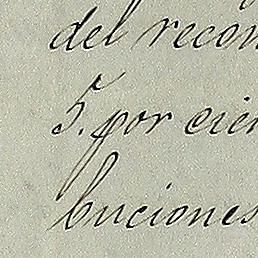 del recon
5. por cien
buciones